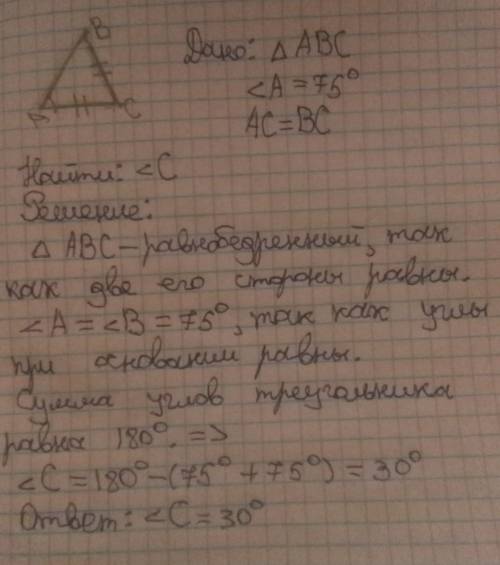 B
A
C
Дано: △ ABC
∠A = 75°
AC = BC
Найти: ∠C
Решение:
△ ABC – равнобедренный, так
как две его стороны равны.
∠A = ∠B = 75°, так как углы
при основании равны.
Сумма углов треугольника
равна 180°. =>
∠C = 180° – (75° + 75°) = 30°
Ответ: ∠C = 30°